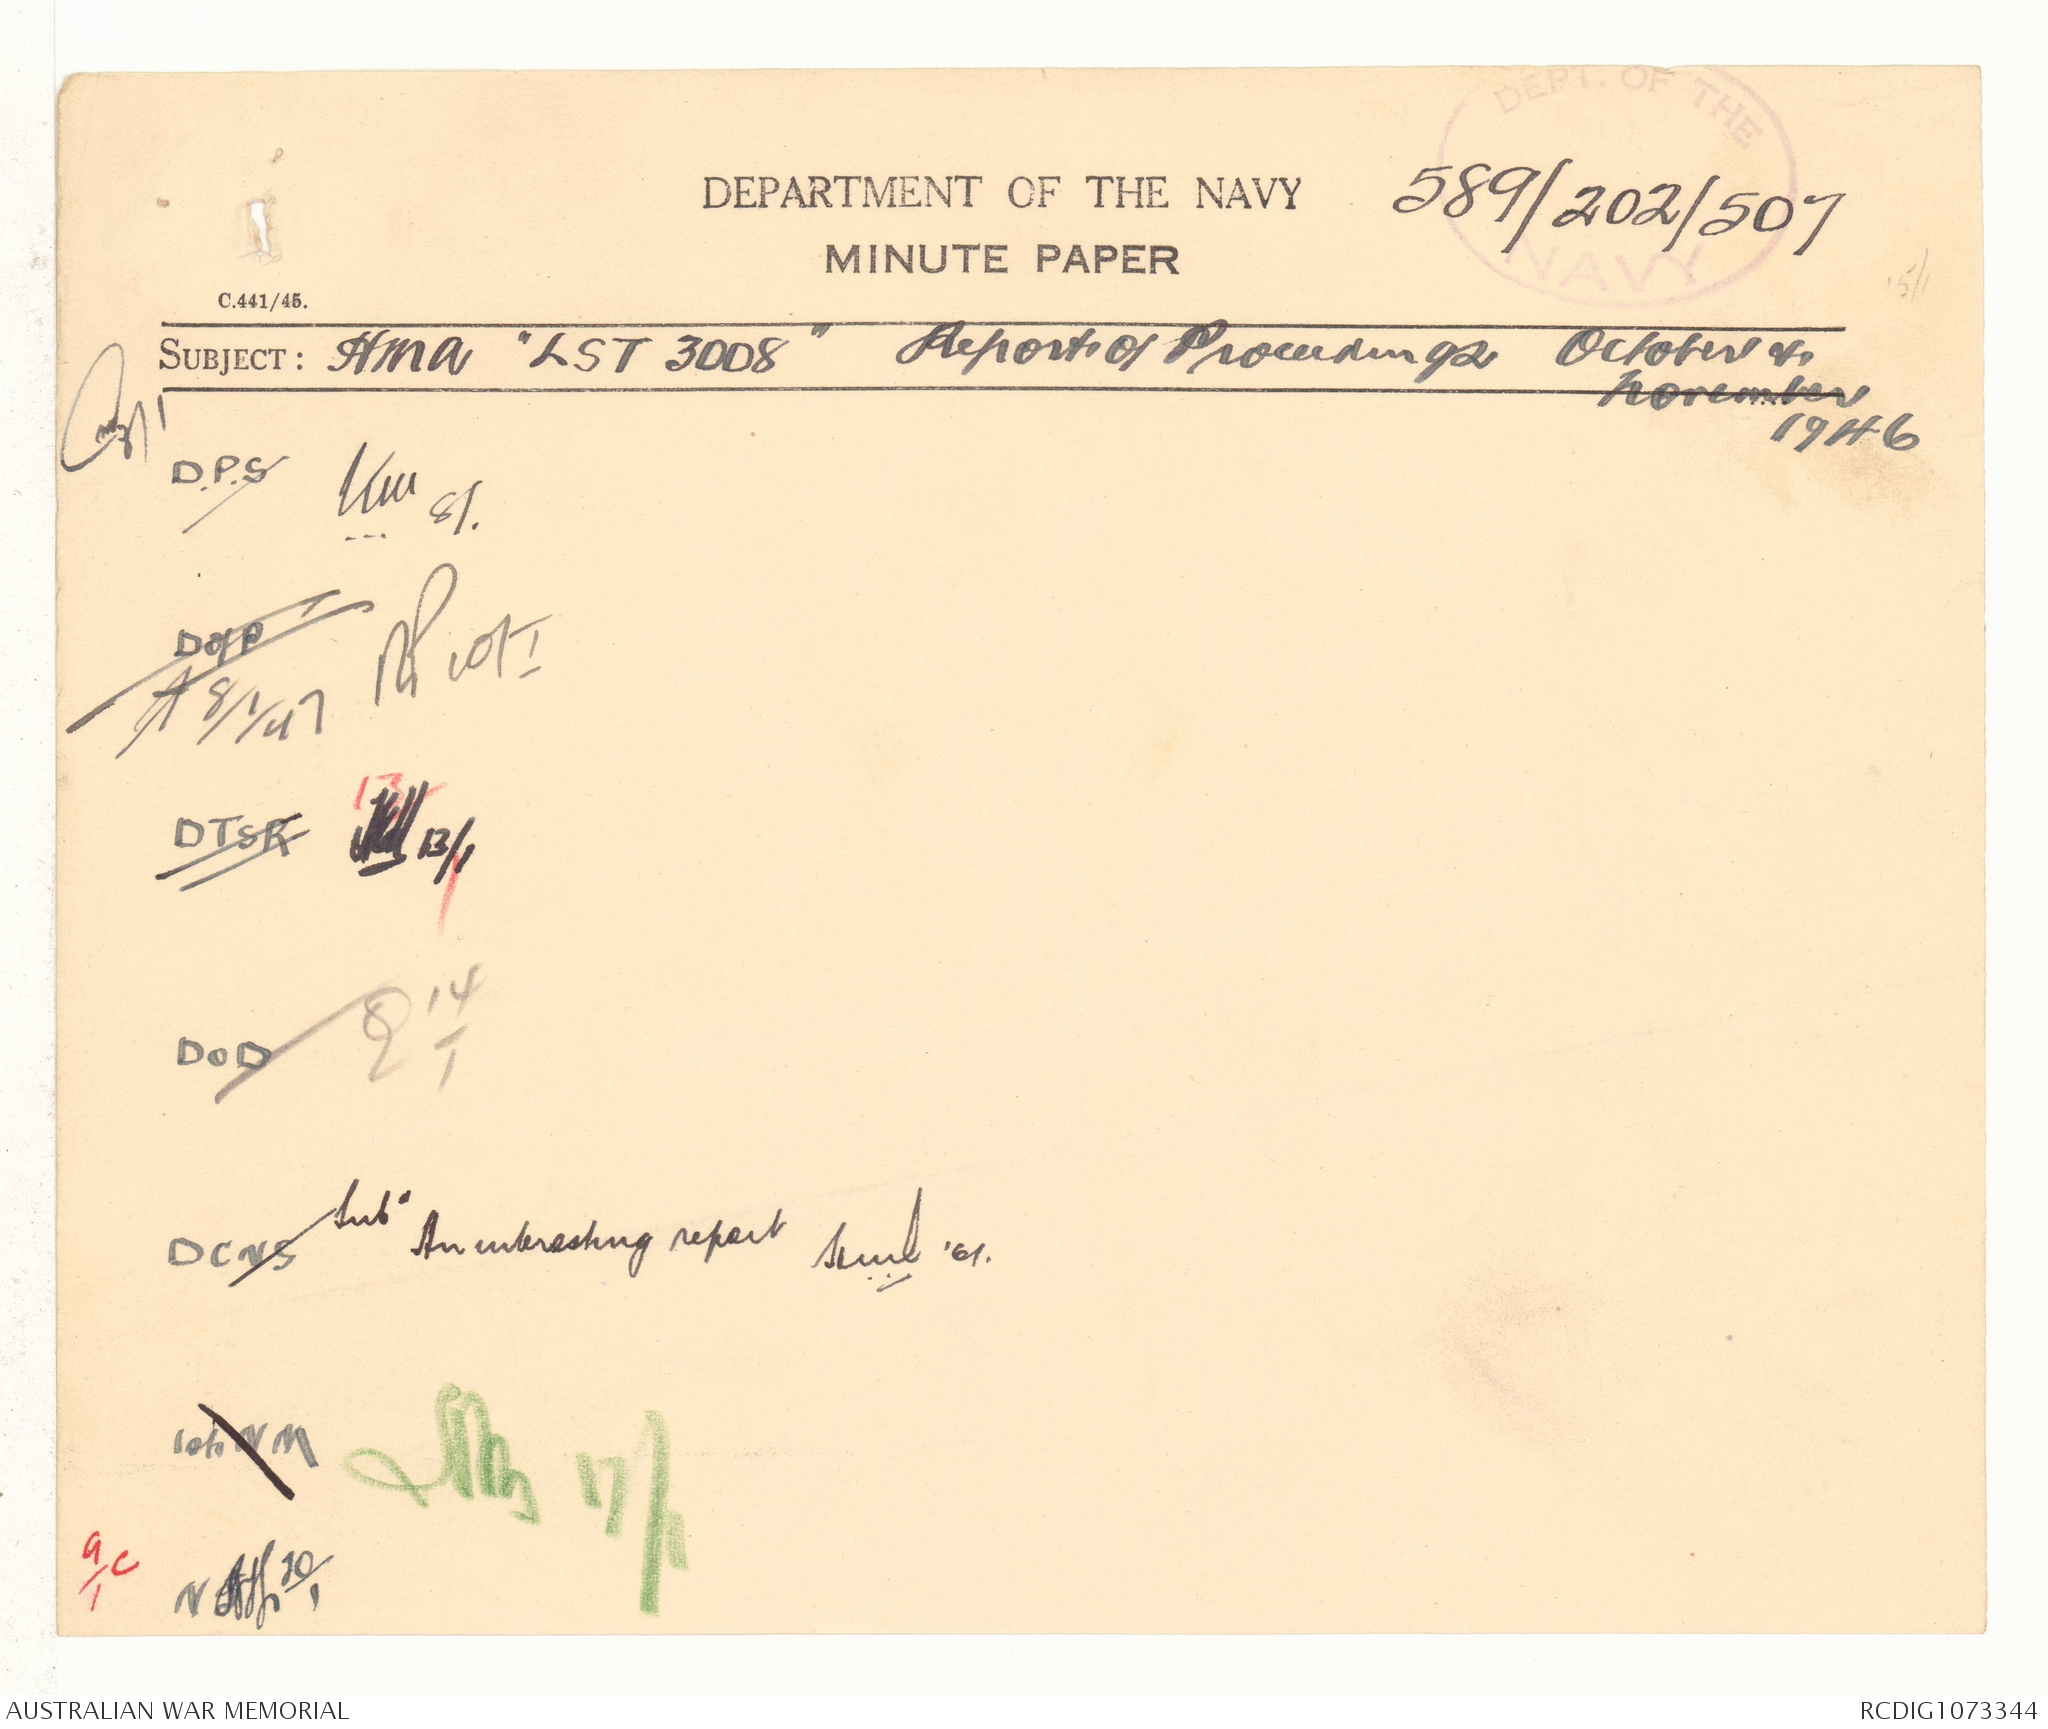 DEPT. OF THE
NAVY
DEPARTMENT OF THE NAVY
589/202/507
MINUTE PAPER
C.441/45.
SUBJECT: HMA "LST 3008" Report of Proceedings October &
November
1946
D.P.S
8/.
D of P
8/1/47
10/1
DTSR
13/1
DoD
14/1
DCNS
Subd
An interesting report
1st NM
17/1
9/1
N
20/1
AUSTRALIAN WAR MEMORIAL
RCDIG1073344